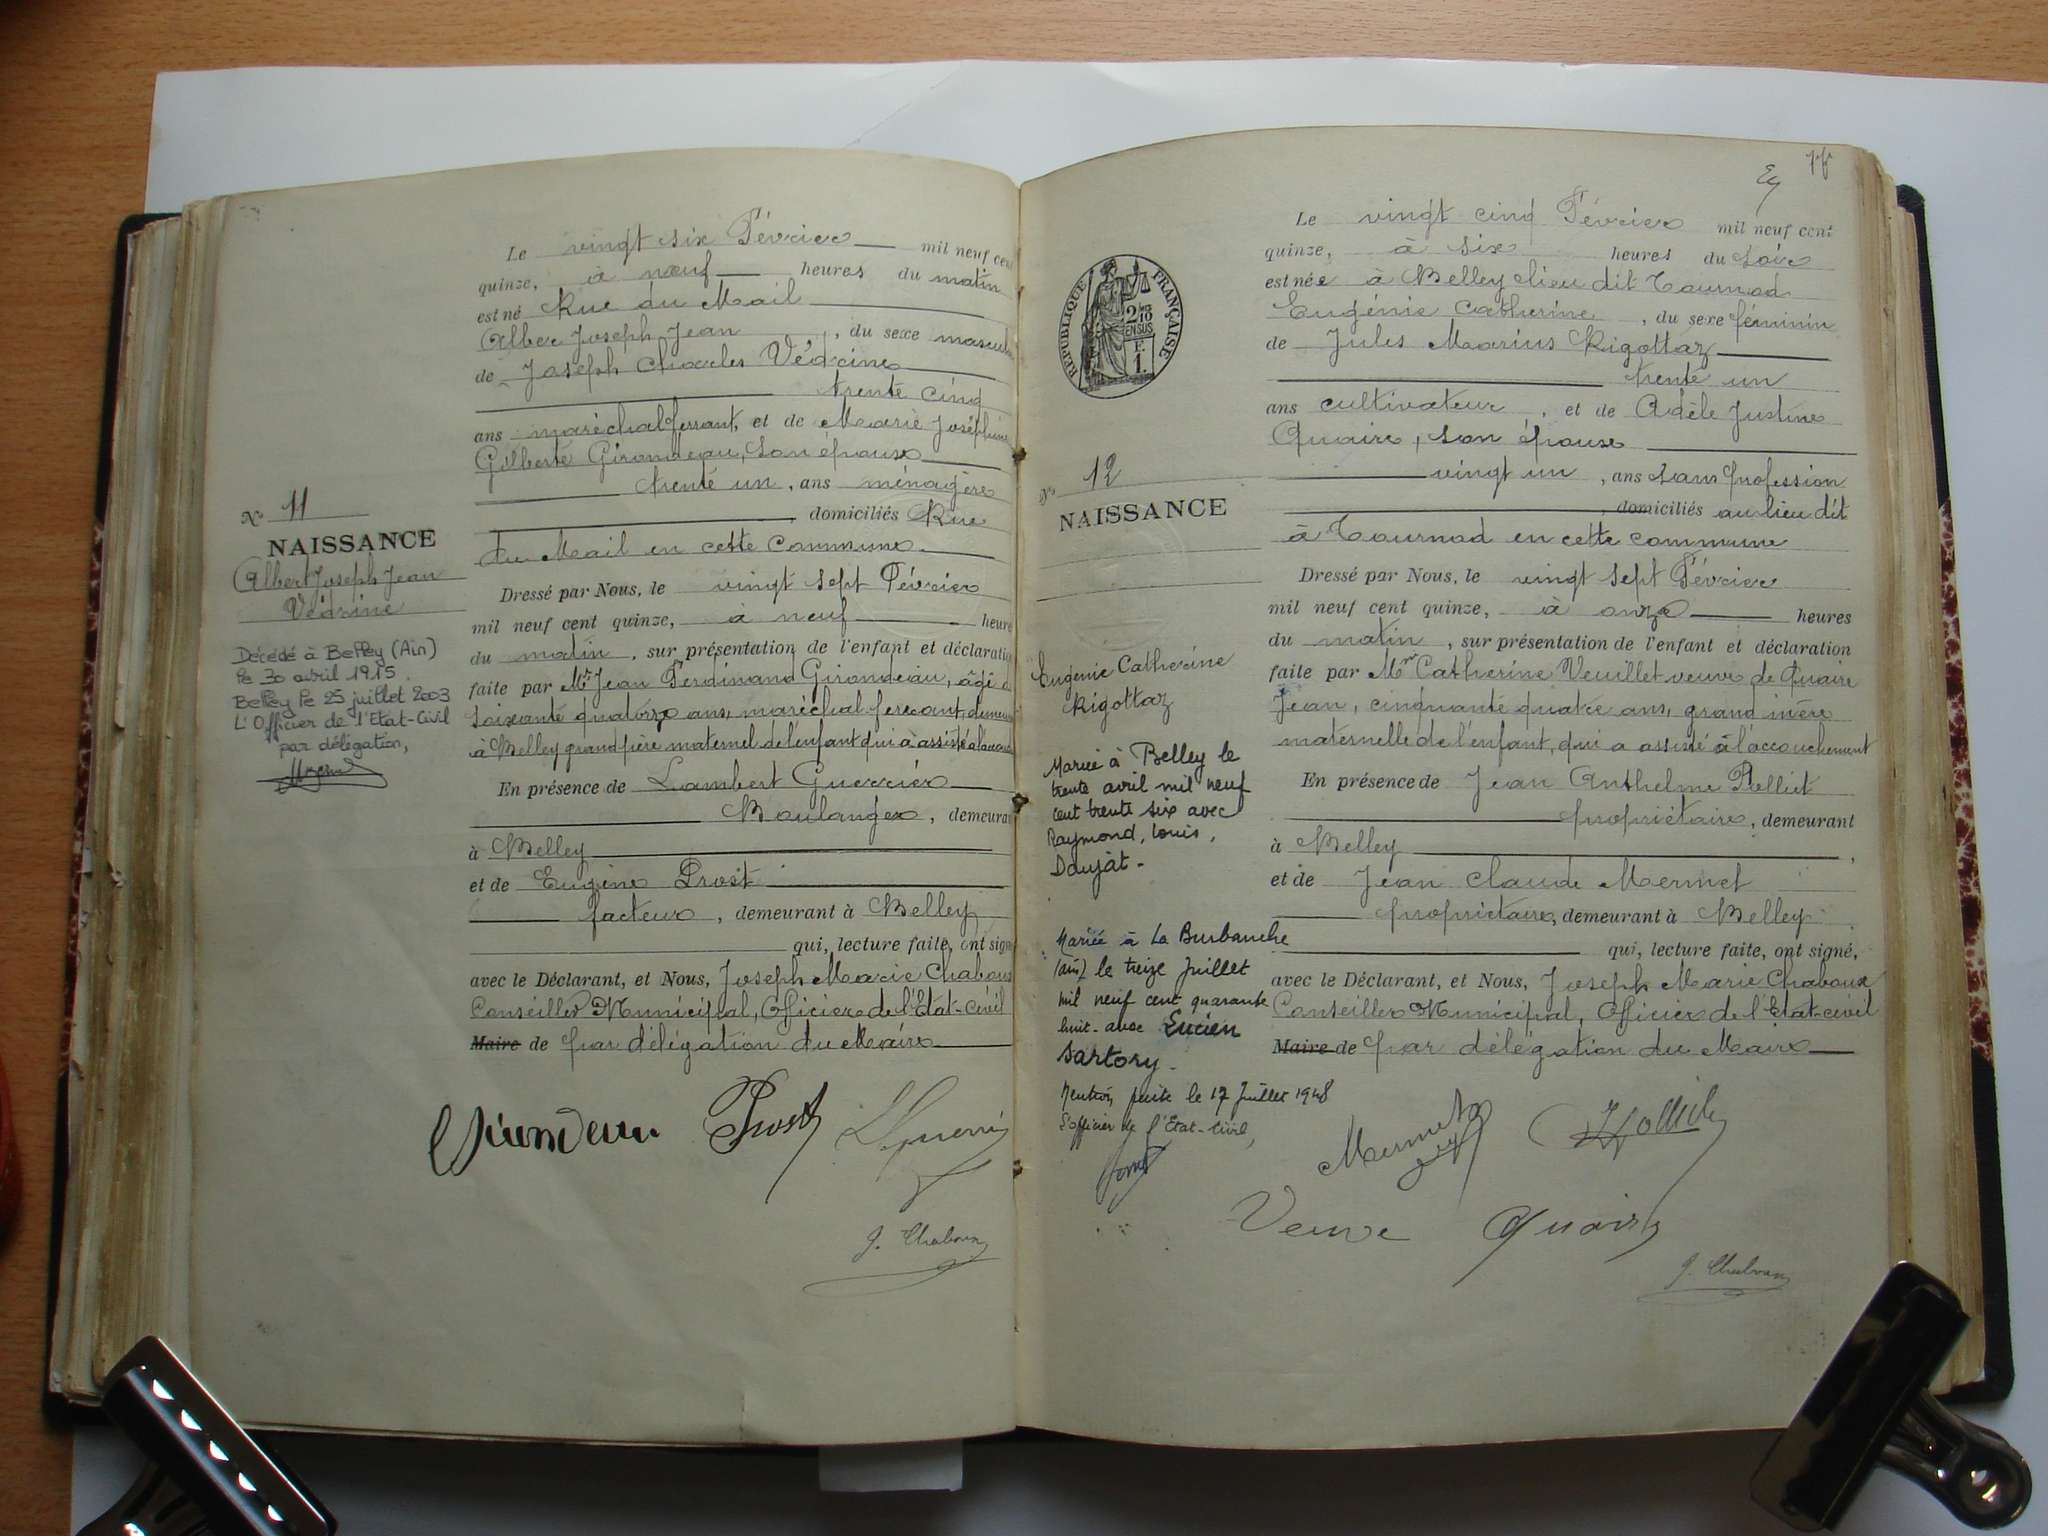 Le vingt six Février mil neuf cent
quinze, à neuf heures du matin
est né Rue du Mail
Alber Joseph Jean, du sexe masculin
de Joseph Charles Védrine
trente cinq
ans maréchal ferrant, et de Marie Joséphine
Gilberte Girondeau, son épouse
trente un, ans ménagère
, domiciliés Rue
du Mail en cette commune
Dressé par Nous, le vingt sept Février
mil neuf cent quinze, à neuf heure
du matin, sur présentation de l'enfant et déclaration
faite par Mr Jean Ferdinand Girondeau, âgé
soixante quatorze ans, maréchal ferrant,
à Belley grand père maternel de l'enfant qui à assisté
En présence de Lambert Guerrier
Boulanger, demeurant
à Belley
et de Eugène Prost
facteur, demeurant à Belley
qui, lecture faite, ont signé
avec le Déclarant, et Nous, Joseph Marie Chaboux
Conseiller Municipal, Officier de l'Etat-Civil
Maire de par délégation du Maire
Girondeau Prost LGuerrier
J. Chaboux
No 11
NAISSANCE
Albert Joseph Jean
Védrine
Décédé à Belley (Ain)
le 30 avril 1915.
Belley le 25 juillet 2003
L'Officier de l'Etat-Civil
par délégation,
Le vingt cinq Février mil neuf cent
quinze, à six heures du soir
est née à Belley lieu dit Tournod
Eugénie Catherine, du sexe féminin
de Jules Marius Rigottaz
trente un
ans cultivateur, et de Adèle Justine
Quaire, son épouse
vingt un, ans sans profession
, domiciliés au lieu dit
à Tournod en cette commune
Dressé par Nous, le vingt sept Février
mil neuf cent quinze, à onze heures
du matin, sur présentation de l'enfant et déclaration
faite par Mme Catherine Veuillet veuve de Quaire
Jean, cinquante quatre ans, grand mère
maternelle de l'enfant, qui a assisté à l'accouchement
En présence de Jean Anthelme Pollet
propriétaire, demeurant
à Belley,
et de Jean Claude Mermet
propriétaire, demeurant à Belley
qui, lecture faite, ont signé,
avec le Déclarant, et Nous, Joseph Marie Chaboux
Conseiller Municipal, Officier de l'Etat-civil
Maire de par délégation du Maire
Mermet
Veuve Quaire
J. Chaboux
RÉPUBLIQUE FRANÇAISE
2/10
EN SUS
F.
1.
No 12
NAISSANCE
Eugénie Catherine
Rigottaz
Mariée à Belley le
trente avril mil neuf
cent trente six avec
Raymond, Louis,
Daujat-
Mariée à La Burbanche
(Ain) le treize juillet
mil neuf cent quarante
huit avec Lucien
Sartory.
Mention faite le 17 Juillet 1948
L'officier de l'Etat-Civil,